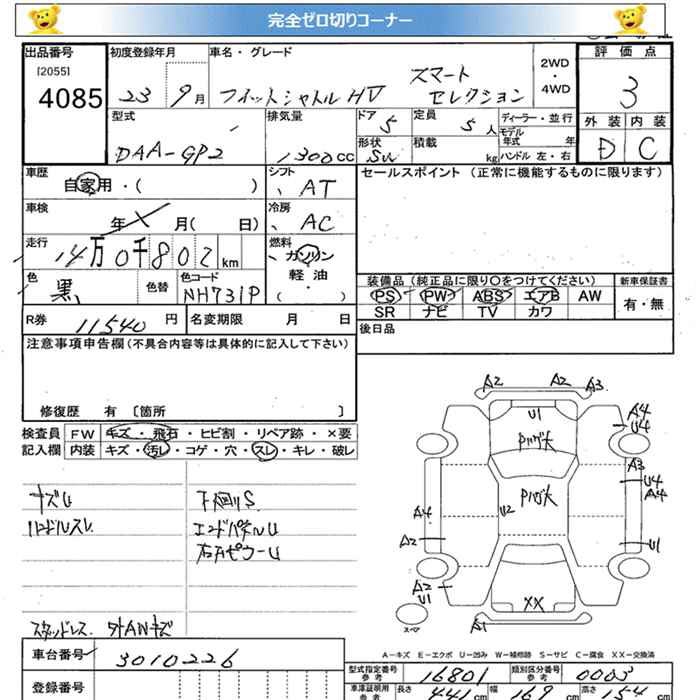 完全ゼロ切りコーナー
出品番号 初度登録年月 車名・グレード 評価点
[2055]
4085
23 9月 フィットシャトルHV スマートセレクション
2WD・4WD
3
型式 排気量 ドア 定員 ディーラー・並行 外装 内装
DAA-GP2 1300cc 5 5人 モデル年式 年
形状 積載 kg ハンドル 左・右
SW D C
車歴 シフト セールスポイント(正常に機能するものに限ります)
自家用・( ) AT
車検 冷房
年 X 月( 日) AC
走行 燃料
14万0千802km ガソリン
軽油
( )
色 色替 色コード
黒 NH731P
装備品(純正品に限り〇をつけてください) 新車保証書
PS PW ABS エアB AW 有・無
SR ナビ TV カワ
R券 11540円 名変期限 月 日 後日品
注意事項申告欄(不具合内容等は具体的に記入して下さい)
修復歴 有 〔箇所 〕
検査員 FW キズ・飛石・ヒビ割・リペア跡・×要
記入欄 内装 キズ・汚レ・コゲ・穴・スレ・キレ・破レ
ナズU 下廻りS
ハンドルスレ エンドパネルU
右Aピラーu
スタッドレス. 外ANキズ
A2 A2 A3
U1
A4
U4
A3
U4
A4
U2
A4
A2
U1
A2
U1
XX
A1
スペア
A-キズ E-エクボ U-凹み W-補修跡 S-サビ C-腐食 XX-交換済
車台番号 3010226
型式指定番号 参考 16801 類別区分番号 参考 0003
登録番号
車庫証明用 参考 長さ 441cm 幅 169cm 高さ 154cm